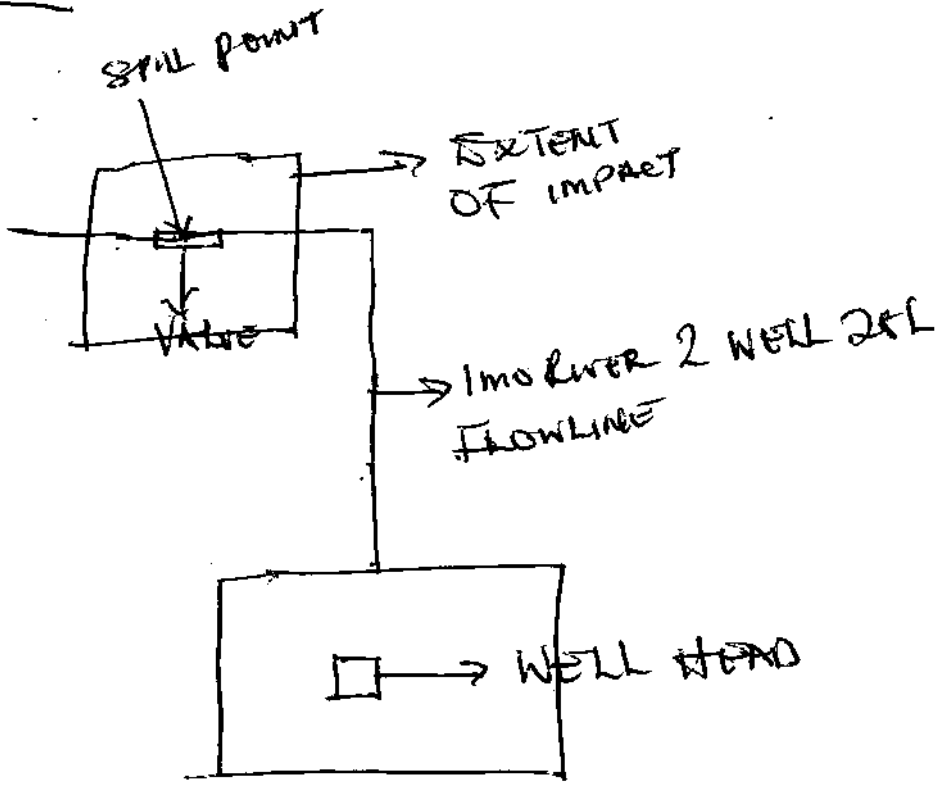 SPILL POINT
EXTENT
OF IMPACT
VALVE
IMO RIVER 2 WELL
FLOWLINE
WELL HEAD